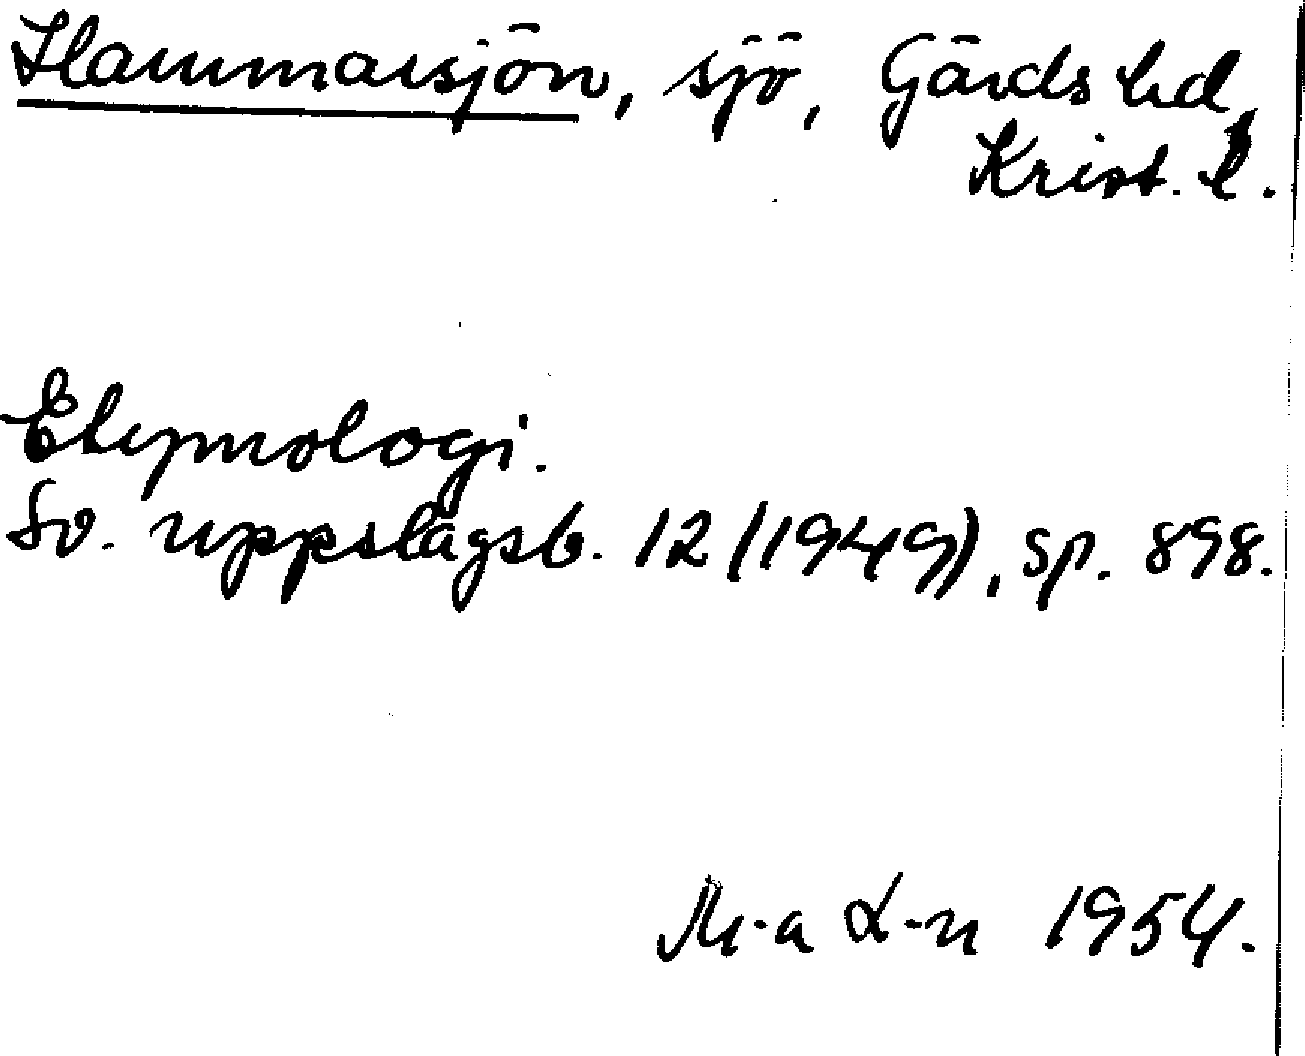 Hammarsjön, sjö, Gärds hd,
Krist. l.
Etymologi.
Sv. uppslagsb. 12 (1949), sp. 898.
M-a L-n 1954.